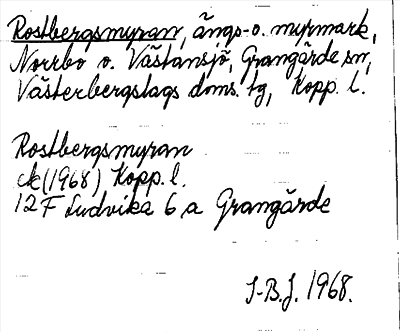 Rostbergsmyran, ängs- o. myrmark,
Norrbo o. Västansjö, Grangärde sn,
Västerbergslags doms. tg, Kopp. l.
Rostbergsmyran
ek (1968) Kopp. l.
12F Ludvika 6 a Grangärde
I-B.J. 1968.